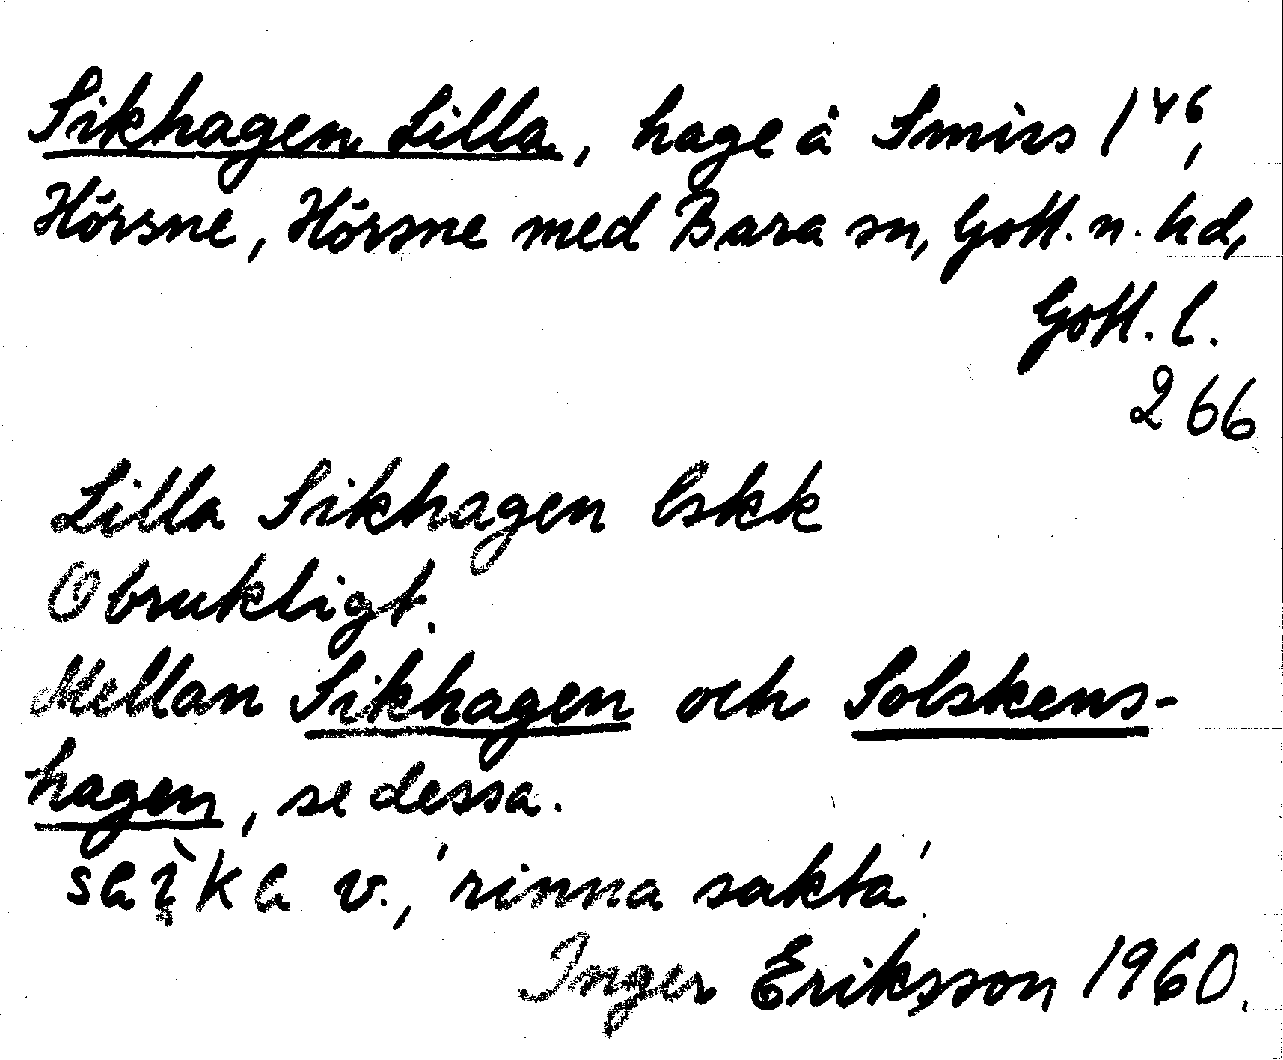 Sikhagen Lilla, hage å Smiss 1⁴⁶,
Hörsne, Hörsne med Bara sn, Gotl. n. hd,
Gotl. l.
266
Lilla Sikhagen Eskk
Obrukligt.
Mellan Sikhagen och Solskens-
hagen, se dessa.
sai̯ka v., 'rinna sakta'
Inger Eriksson 1960.